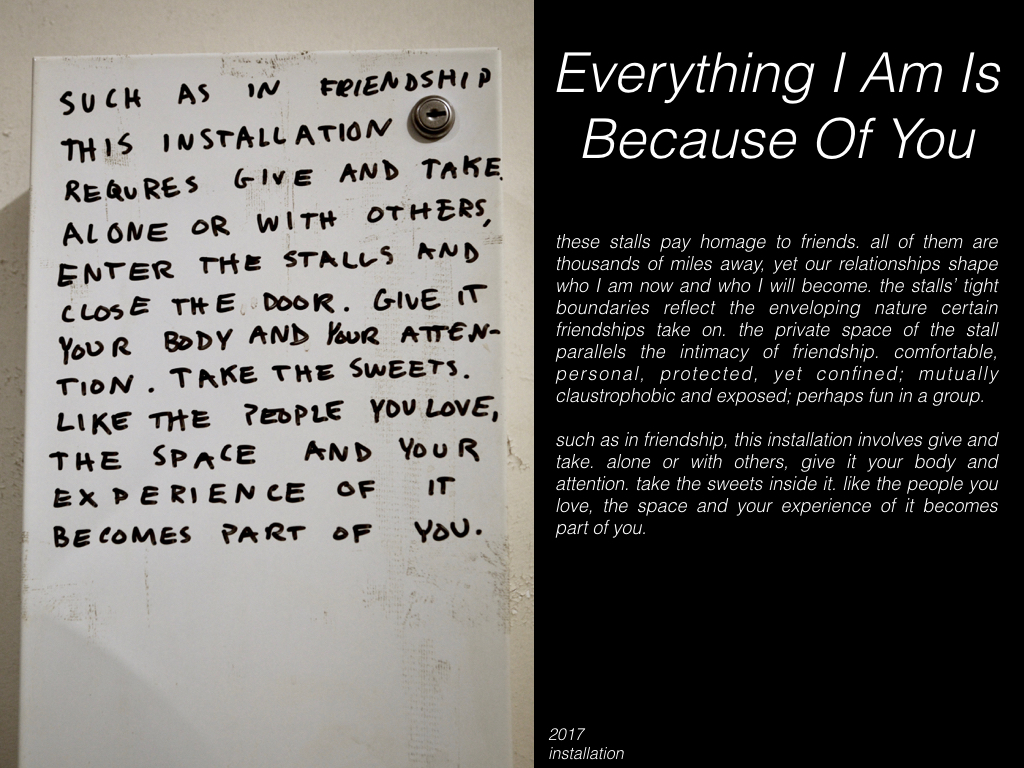 SUCH AS IN FRIENDSHIP
THIS INSTALLATION
REQURES GIVE AND TAKE.
ALONE OR WITH OTHERS,
ENTER THE STALLS AND
CLOSE THE DOOR. GIVE IT
YOUR BODY AND YOUR ATTEN-
TION. TAKE THE SWEETS.
LIKE THE PEOPLE YOU LOVE,
THE SPACE AND YOUR
EXPERIENCE OF IT
BECOMES PART OF YOU.
Everything I Am Is
Because Of You
these stalls pay homage to friends. all of them are
thousands of miles away, yet our relationships shape
who I am now and who I will become. the stalls' tight
boundaries reflect the enveloping nature certain
friendships take on. the private space of the stall
parallels the intimacy of friendship. comfortable,
personal, protected, yet confined; mutually
claustrophobic and exposed; perhaps fun in a group.
such as in friendship, this installation involves give and
take. alone or with others, give it your body and
attention. take the sweets inside it. like the people you
love, the space and your experience of it becomes
part of you.
2017
installation